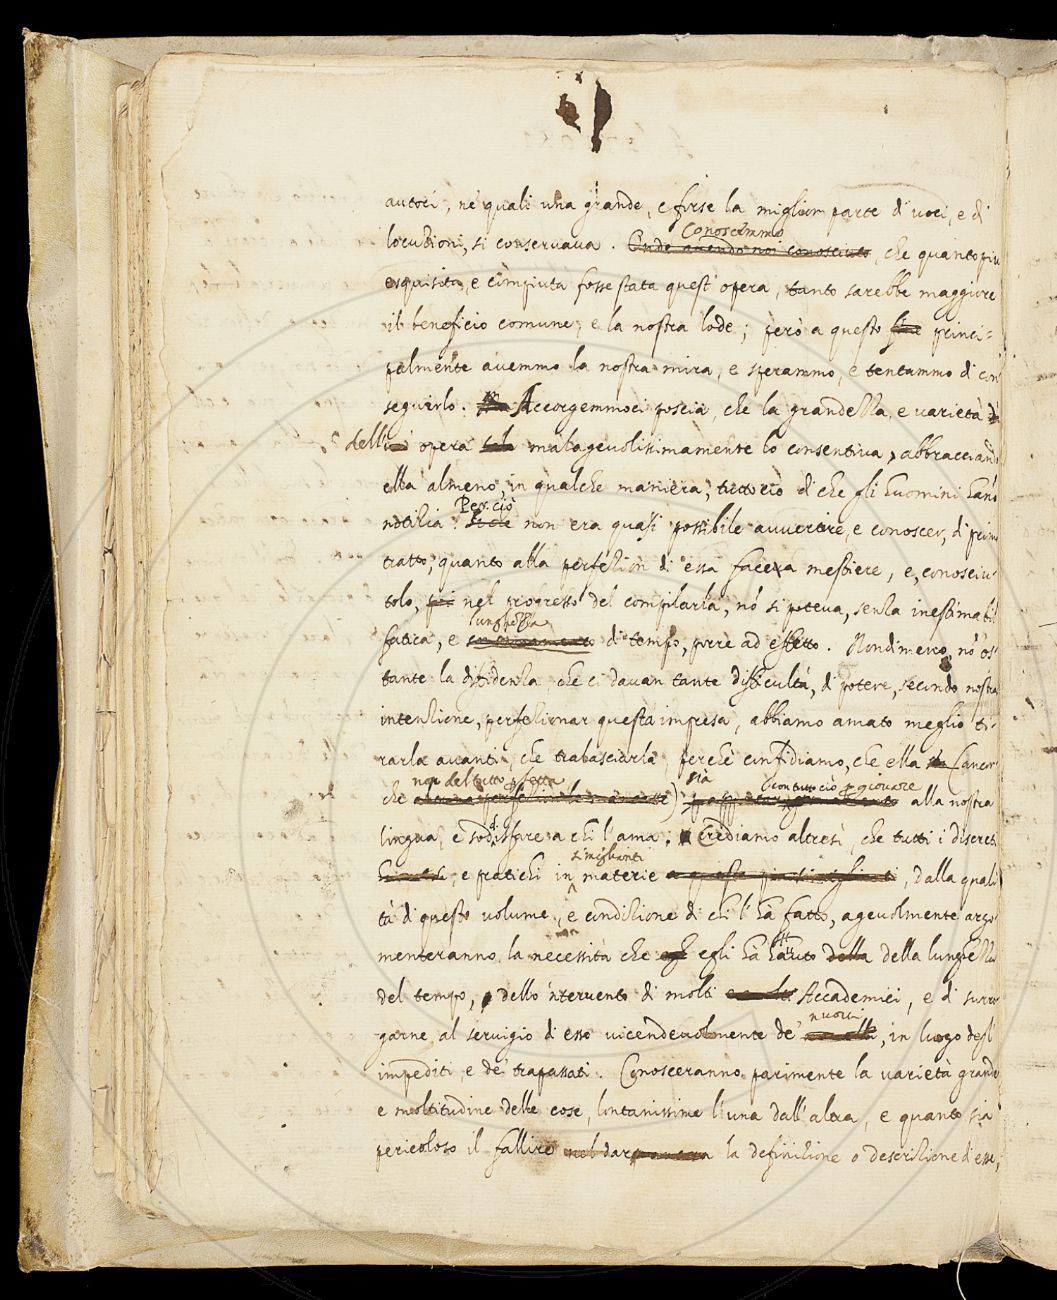 autori, ne' quali una grande, e forse la miglior parte di voci, e di
locuzioni, si conservava. Conoscemmo
Onde avendo noi conosciuto, che quanto più
esquisita, e compiuta fosse stata quest'opera, tanto sarebbe maggiore
il beneficio comune, e la nostra lode; però a questo fine princi=
palmente avemmo la nostra mira, e sperammo, e tentammo di con
seguirlo. Accorgemmoci poscia, che la grandezza, e varietà
dell' opera malagevolissimamente lo consentiva, abbracciando
ella almeno, in qualche maniera, tutto ciò di che gli huomini hano
Per ciò
notizia. non era quasi possibile avvertire, e conoscer, di primo
tratto, quanto alla perfezion di essa faceva mestiere, e, conosciu-
tolo, poi nel progresso del compilarla, nõ si poteva, senza inestimabil
lunghezza
fatica, e di tempo, porre ad effetto. Nondimeno, nõ os-
tante la diffidenza, che ci davan tante difficultà, di potere, secondo nostra
intenzione, perfezionar questa impresa, abbiamo amato meglio ti-
rarla avanti, che tralasciarla, perchè confidiamo, che ella (ancor
non del tutto pfetta sia con tutto ciò p giovare
che alla nostra
lingua, e sodisfare a chi l'ama. Crediamo altresì, che tutti i discreti
simiglianti
, e pratichi in materie , dalla quali
tà di questo volume, e condizione di chi l'ha fatto, agevolmente argo
menteranno la necessità che egli ha hauuto della della lunghezza
del tempo, dello 'ntervento di molti Accademici, e di surro
nuovi
garne al servigio di esso vicendevolmente de' , in luogo degl'
impediti e de' trapassati. Conosceranno parimente la varietà grande
e moltitudine delle cose, lontanissime l'una dall'altra, e quanto sia
pericoloso il fallire nel dar la definizione o descrizione d'esse,